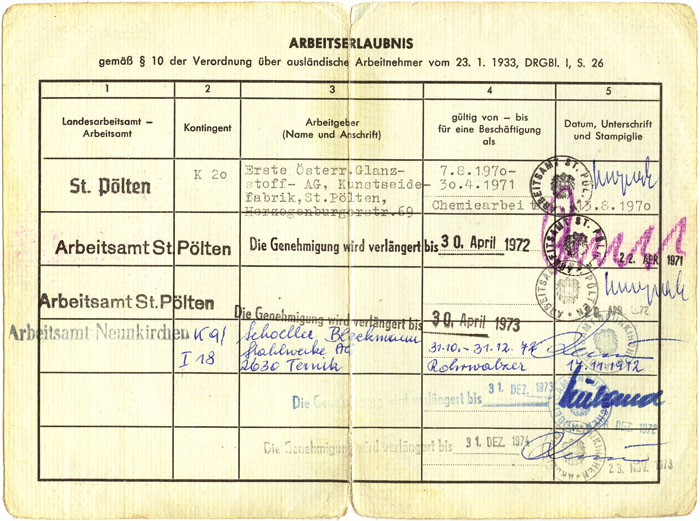 ARBEITSERLAUBNIS
gemäß § 10 der Verordnung über ausländische Arbeitnehmer vom 23. 1. 1933, DRGBl. I, S. 26
1 2 3 4 5
Landesarbeitsamt –
Arbeitsamt
Kontingent
Arbeitgeber
(Name und Anschrift)
gültig von – bis
für eine Beschäftigung
als
Datum, Unterschrift
und Stampiglie
St. Pölten
K 20
Erste Österr.Glanz-
stoff- AG, Kunstseide-
fabrik,St.Pölten,
Herzogenburgerstr.69
7.8.1970-
30.4.1971
Chemiearbei
ARBEITSAMT ST. PÖL
13.8.1970
Arbeitsamt St. Pölten
Die Genehmigung wird verlängert bis 30. April 1972
ARBEITSAMT ST. PÖL
22. APR. 1971
Arbeitsamt St. Pölten
Die Genehmigung wird verlängert bis 30. April 1973
ARBEITSAMT ST. PÖLTEN
APR. 1972
Arbeitsamt Neunkirchen
K 9/
I 18
Schoeller Bleckmann
Stahlwerke AG
2630 Ternitz
31.10.-31.12.72
Rohrwalzer
14.11.1972
Die Genehmigung wird verlängert bis 31. DEZ. 1973
DEZ. 1972
Die Genehmigung wird verlängert bis 31. DEZ. 1974
23. NOV. 1973